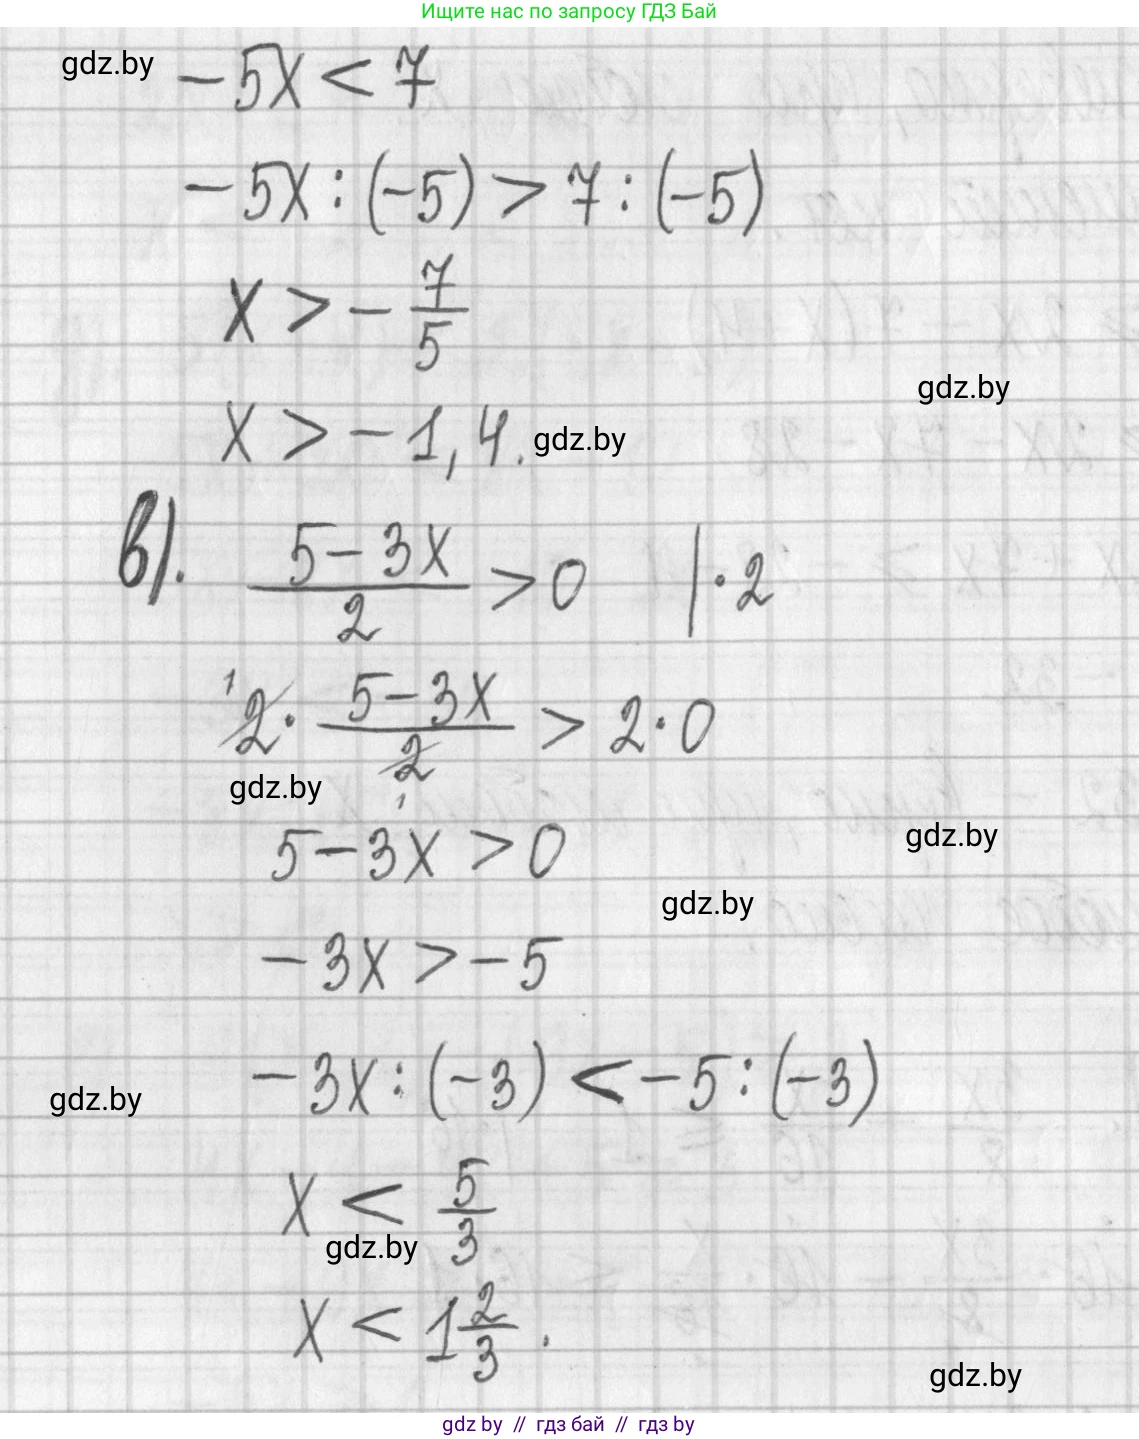 Ищите нас по запросу ГДЗ Бай
gdz.by
-5x < 7
-5x : (-5) > 7 : (-5)
x > - 7/5
gdz.by
x > -1,4.
gdz.by
в).
(5-3x)/2 > 0 | · 2
¹2 · (5-3x)/2₁ > 2 · 0
gdz.by
5-3x > 0
gdz.by
gdz.by
-3x > -5
-3x : (-3) < -5 : (-3)
gdz.by
x < 5/3
gdz.by
x < 1 2/3.
gdz.by
gdz by // гдз бай // гдз by